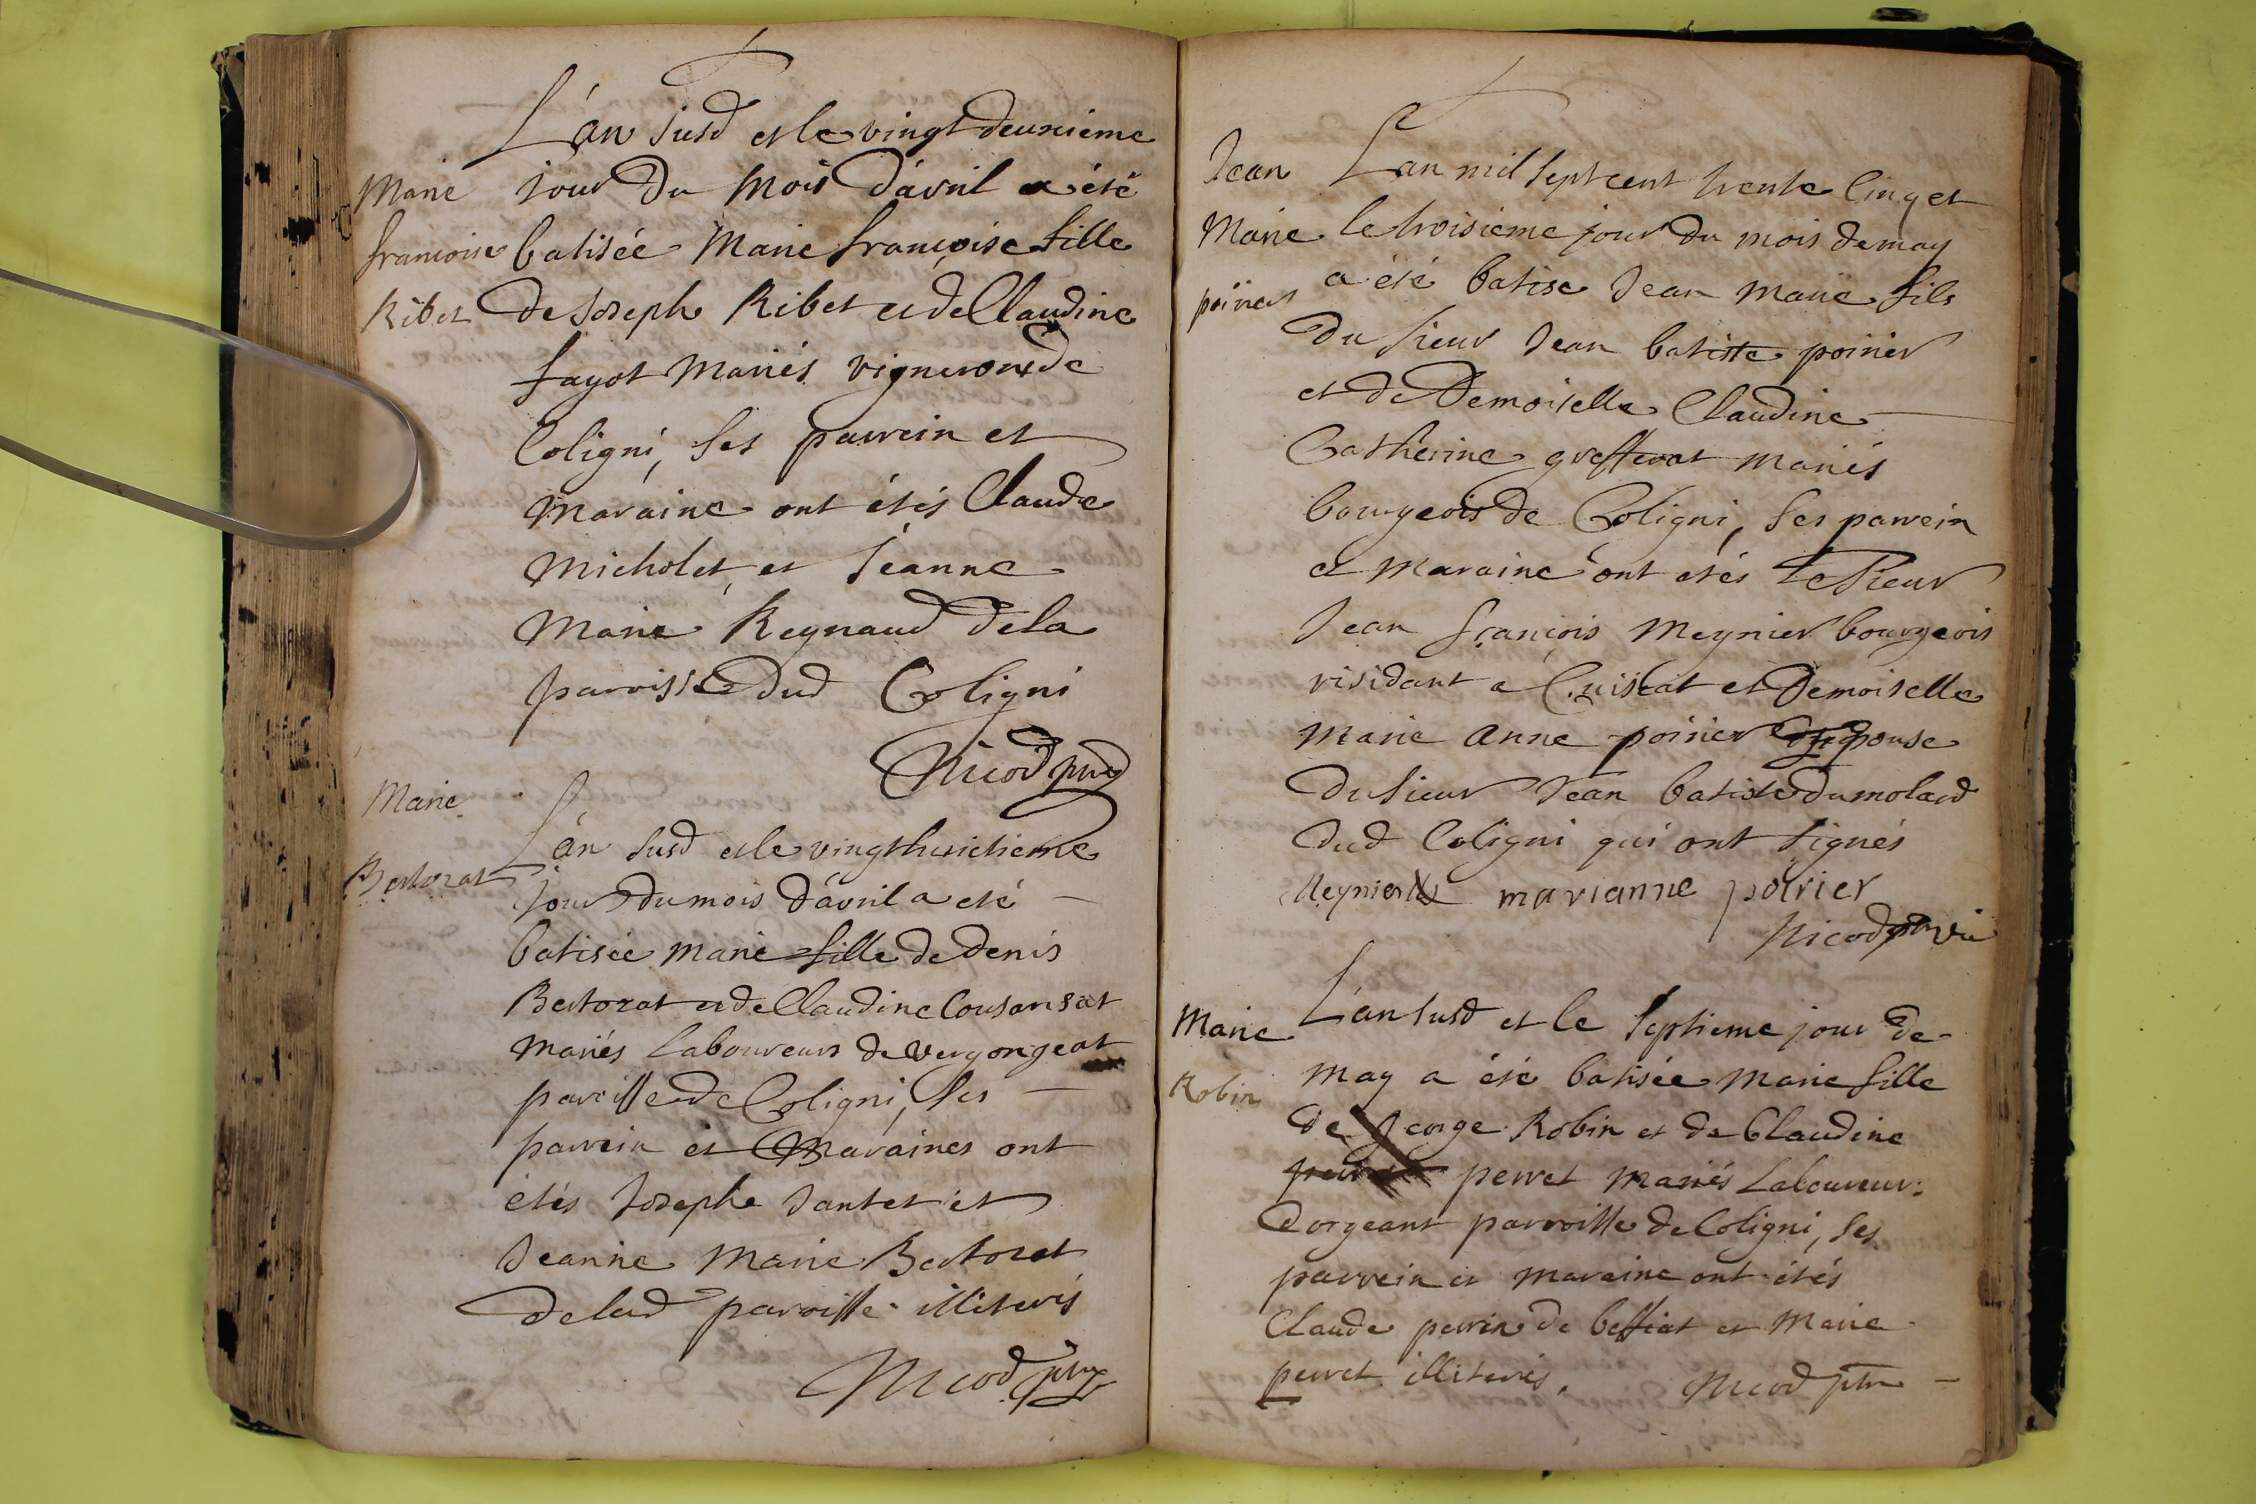 L'an susd et le vingt deuxieme
Marie
jour du mois d'avril a été
francoise
batisée Marie françoise fille
Ribet
de Joseph Ribet et de Claudine
fayot mariés vignerons de
Coligni, ses parrein et
maraine ont étés Claude
Micholet et Jeanne
Marie Reynaud de la
parroisse dud Coligni
Nicod
Marie
L'an susd et le vingt huictieme
Bertozat
jour du mois d'avril a eté
batisée marie fille de denis
Bertozat et de Claudine Cousansat
mariés Laboureurs de vergongeat
paroisse de Coligni, ses
parrein et Maraines ont
étés Joseph Jantet et
Jeanne Marie Bertozat
de lad paroisse illiterés
Nicod
Jean
L'an mil sept cent trente cinq et
Marie
le troisieme jour du mois de may
poirier
a été batisé Jean Marie fils
du sieur Jean batiste poirier
et de Demoiselle Claudine
Catherine greffexat mariés
bourgeois de Coligni, ses parrein
et maraine ont etés le sieur
Jean françois Meynier bourgeois
residant a Cuiseat et Demoiselle
Marie Anne poirier epouse
du sieur Jean batiste dumolard
dud Coligni qui ont signés
Meynier marianne poirier
Nicod
L'an susd et le septieme jour de
Marie
may a été batisée Marie fille
Robin
de George Robin et de Claudine
perret mariés Laboureurs
Dorgeant parroisse de Coligni, ses
parrein et maraine ont étés
Claude perrin de bessiat et Marie
perret illiterés, Nicod ptre